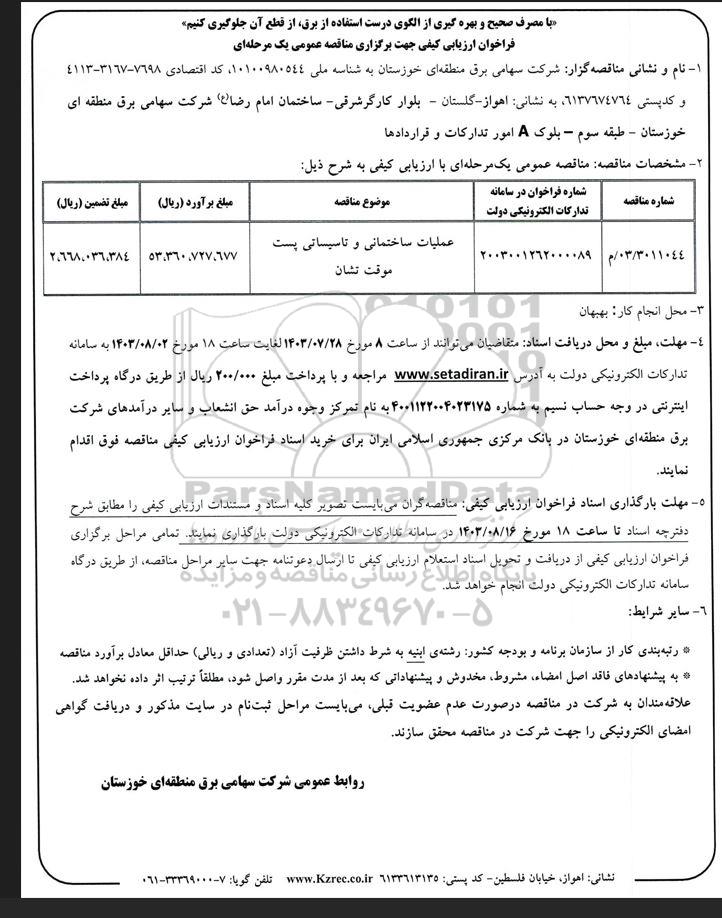 «با مصرف صحیح و بهره گیری از الگوی درست استفاده از برق، از قطع آن جلوگیری کنیم»
فراخوان ارزیابی کیفی جهت برگزاری مناقصه عمومی یک مرحله‌ای
۱- نام و نشانی مناقصه‌گزار: شرکت سهامی برق منطقه‌ای خوزستان به شناسه ملی ۱۰۱۰۰۹۸۰۵۴۴، کد اقتصادی ۷۶۹۸-۳۱۶۷-۴۱۱۳
و کدپستی ۶۱۳۷۶۷۴۷۶۴، به نشانی: اهواز-گلستان - بلوار کارگرشرقی- ساختمان امام رضا(ع) شرکت سهامی برق منطقه ای
خوزستان - طبقه سوم – بلوک A امور تدارکات و قراردادها
۲- مشخصات مناقصه: مناقصه عمومی یک‌مرحله‌ای با ارزیابی کیفی به شرح ذیل:
شماره مناقصه
شماره فراخوان در سامانه تدارکات الکترونیکی دولت
موضوع مناقصه
مبلغ برآورد (ریال)
مبلغ تضمین (ریال)
۰۳/۳۰۱۱۰۴۴/م
۲۰۰۳۰۰۱۲۶۲۰۰۰۰۸۹
عملیات ساختمانی و تاسیساتی پست
موقت تشان
۵۳.۳۶۰.۷۲۷.۶۷۷
۲.۶۶۸.۰۳۶.۳۸۴
۳- محل انجام کار: بهبهان
۴- مهلت، مبلغ و محل دریافت اسناد: متقاضیان می‌توانند از ساعت ۸ مورخ ۱۴۰۳/۰۷/۲۸ لغایت ساعت ۱۸ مورخ ۱۴۰۳/۰۸/۰۲ به سامانه
تدارکات الکترونیکی دولت به آدرس www.setadiran.ir مراجعه و با پرداخت مبلغ ۲۰۰/۰۰۰ ریال از طریق درگاه پرداخت
اینترنتی در وجه حساب نسیم به شماره ۴۰۰۱۱۲۲۰۰۴۰۲۳۱۷۵ به نام تمرکز وجوه درآمد حق انشعاب و سایر درآمدهای شرکت
برق منطقه‌ای خوزستان در بانک مرکزی جمهوری اسلامی ایران برای خرید اسناد فراخوان ارزیابی کیفی مناقصه فوق اقدام
نمایند.
۵- مهلت بارگذاری اسناد فراخوان ارزیابی کیفی: مناقصه‌گران می‌بایست تصویر کلیه اسناد و مستندات ارزیابی کیفی را مطابق شرح
دفترچه اسناد تا ساعت ۱۸ مورخ ۱۴۰۳/۰۸/۱۶ در سامانه تدارکات الکترونیکی دولت بارگذاری نمایند. تمامی مراحل برگزاری
فراخوان ارزیابی کیفی از دریافت و تحویل اسناد استعلام ارزیابی کیفی تا ارسال دعوتنامه جهت سایر مراحل مناقصه، از طریق درگاه
سامانه تدارکات الکترونیکی دولت انجام خواهد شد.
ParsNamadData
پایگاه اطلاع رسانی مناقصه و مزایده
۰۲۱-۸۸۳۴۹۶۷۰-۵
۶- سایر شرایط:
* رتبه‌بندی کار از سازمان برنامه و بودجه کشور: رشته‌ی ابنیه به شرط داشتن ظرفیت آزاد (تعدادی و ریالی) حداقل معادل برآورد مناقصه
* به پیشنهادهای فاقد اصل امضاء، مشروط، مخدوش و پیشنهاداتی که بعد از مدت مقرر واصل شود، مطلقاً ترتیب اثر داده نخواهد شد.
علاقه‌مندان به شرکت در مناقصه درصورت عدم عضویت قبلی، می‌بایست مراحل ثبت‌نام در سایت مذکور و دریافت گواهی
امضای الکترونیکی را جهت شرکت در مناقصه محقق سازند.
روابط عمومی شرکت سهامی برق منطقه‌ای خوزستان
نشانی: اهواز، خیابان فلسطین- کد پستی: ۶۱۳۳۶۱۳۱۳۵ www.Kzrec.co.ir تلفن گویا: ۷-۳۳۳۶۹۰۰۰-۰۶۱